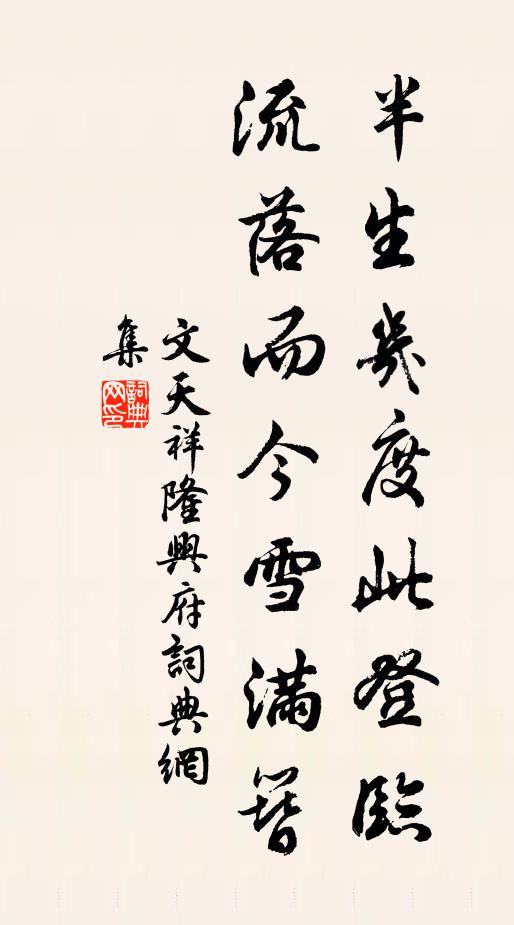 半生幾度此登臨
流落而今雪滿簪
文天祥隆興府詞典網
集
詞典網印